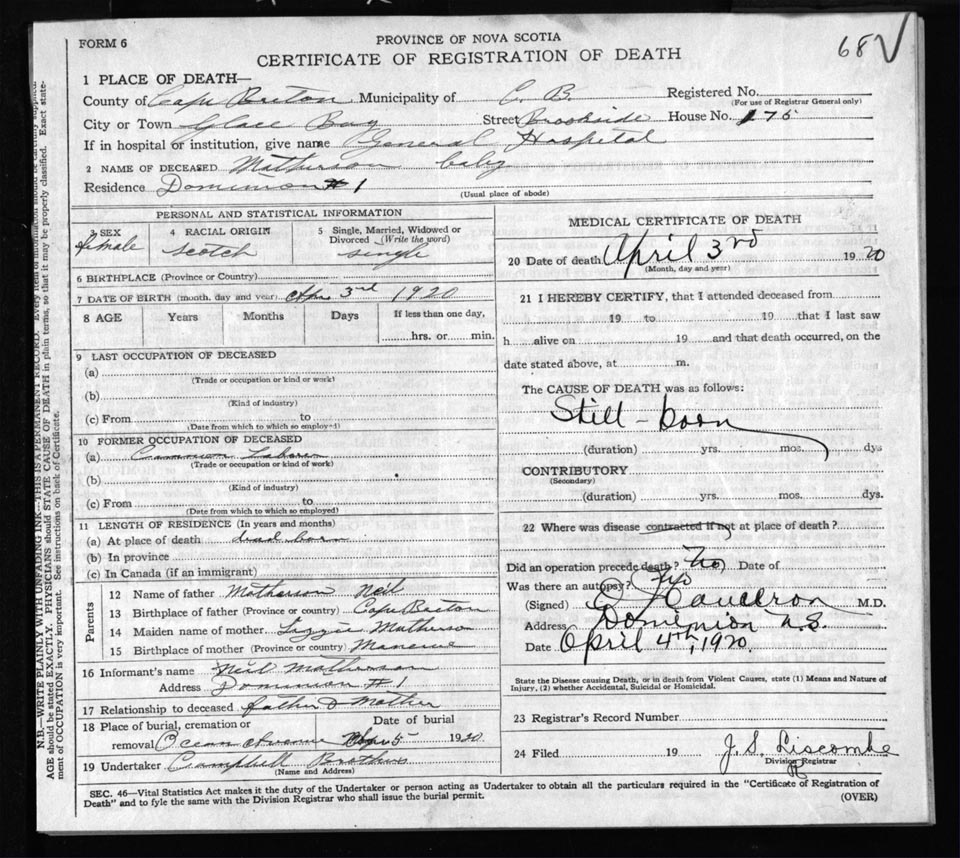 FORM 6
PROVINCE OF NOVA SCOTIA
CERTIFICATE OF REGISTRATION OF DEATH
68
1 PLACE OF DEATH—
County of Cape Breton Municipality of C. B. Registered No.
(For use of Registrar General only)
City or Town Glace Bay Street Brookside House No. 175
If in hospital or institution, give name General Hospital
2 NAME OF DECEASED Matheson baby
Residence Dominion # 1
(Usual place of abode)
PERSONAL AND STATISTICAL INFORMATION
3 SEX female
4 RACIAL ORIGIN Scotch
5 Single, Married, Widowed or Divorced (Write the word) single
6 BIRTHPLACE (Province or Country)
7 DATE OF BIRTH (month, day and year) Apr 3rd 1920
8 AGE Years Months Days If less than one day,
hrs. or min.
9 LAST OCCUPATION OF DECEASED
(a)
(Trade or occupation or kind or work)
(b)
(Kind of industry)
(c) From to
(Date from which to which so employed)
10 FORMER OCCUPATION OF DECEASED
(a) Common Laborer
(Trade or occupation or kind of work)
(b)
(Kind of industry)
(c) From to
(Date from which to which so employed)
11 LENGTH OF RESIDENCE (In years and months)
(a) At place of death dead born
(b) In province
(c) In Canada (if an immigrant)
Parents
12 Name of father Matheson Neil
13 Birthplace of father (Province or country) Cape Breton
14 Maiden name of mother Lizzie Matheson
15 Birthplace of mother (Province or country)
16 Informant's name Neil Matheson
Address Dominion # 1
17 Relationship to deceased father & Mother
18 Place of burial, cremation or Date of burial
removal Ocean Avenue 5 1920
19 Undertaker Campbell Brothers
(Name and Address)
MEDICAL CERTIFICATE OF DEATH
20 Date of death April 3rd 1920
(Month, day and year)
21 I HEREBY CERTIFY, that I attended deceased from
19 to 19 that I last saw
h alive on 19 and that death occurred, on the
date stated above, at m.
The CAUSE OF DEATH was as follows:
Still-born
(duration) yrs. mos. dys
CONTRIBUTORY
(Secondary)
(duration) yrs. mos. dys.
22 Where was disease contracted if not at place of death?
Did an operation precede death? No Date of
Was there an autopsy? No
(Signed) M.D.
Address Dominion N.S.
Date April 4th, 1920.
State the Disease causing Death, or in death from Violent Causes, state (1) Means and Nature of
Injury, (2) whether Accidental, Suicidal or Homicidal.
23 Registrar's Record Number
24 Filed 19 J. S. Liscombe
Division Registrar
SEC. 46—Vital Statistics Act makes it the duty of the Undertaker or person acting as Undertaker to obtain all the particulars required in the "Certificate of Registration of
Death" and to fyle the same with the Division Registrar who shall issue the burial permit.
(OVER)
N.B.—WRITE PLAINLY WITH UNFADING INK—THIS IS A PERMANENT RECORD. Every item of information should be carefully supplied.
AGE should be stated EXACTLY. PHYSICIANS should STATE CAUSE OF DEATH in plain terms, so that it may be properly classified. Exact state-
ment of OCCUPATION is very important. See instructions on back of Certificate.